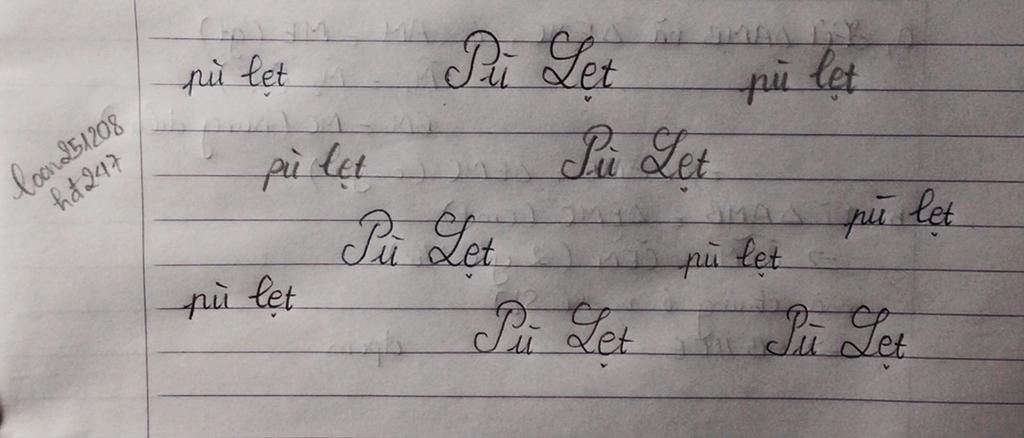 pù lẹt Pù Lẹt pù lẹt
pù lẹt Pù Lẹt
pù lẹt
Pù Lẹt pù lẹt
pù lẹt
Pù Lẹt Pù Lẹt
loan251208
hđ247